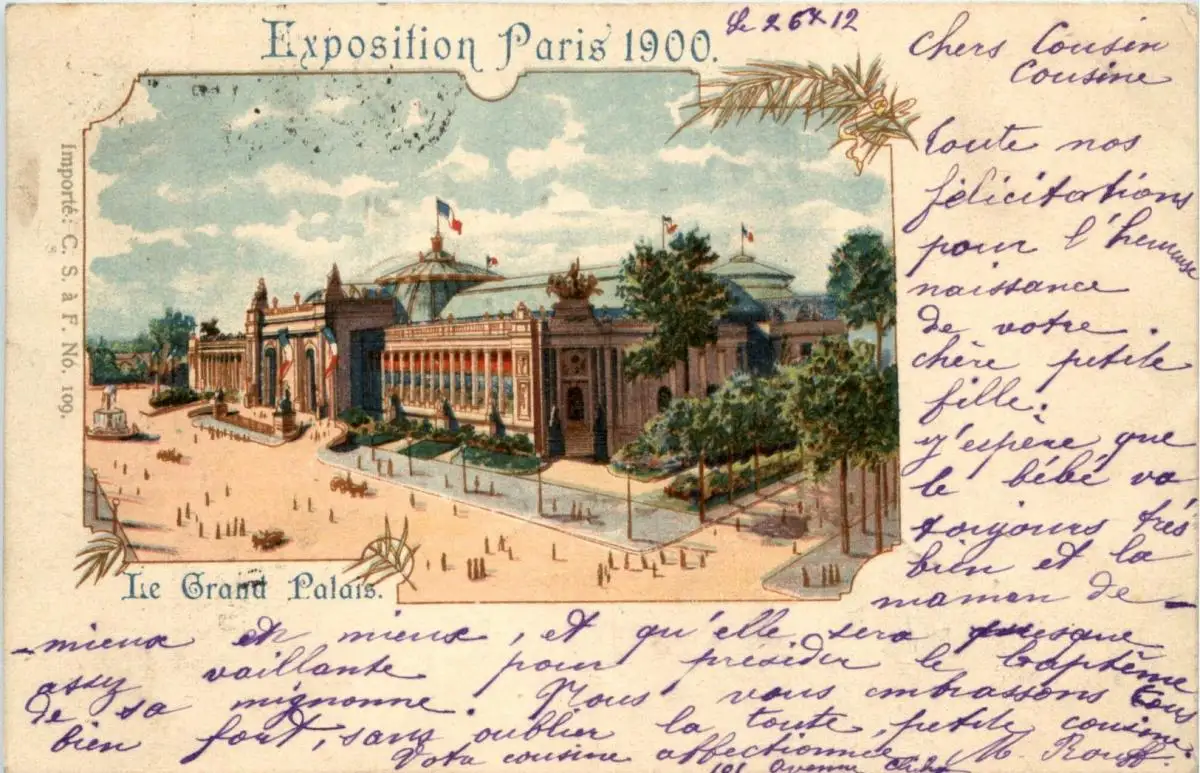 Exposition Paris 1900.
Le 26 X 12
Importé: C. S. à F. No. 109.
Le Grand Palais.
Chers Cousin
Cousine
toute nos
félicitations
pour l'heureuse
naissance
de votre
chère petite
fille.
j'espère que
le bébé va
toujours très
bien et la
maman de
mieux en mieux, et qu'elle sera presque
assez vaillante pour présider le baptême
de sa mignonne. Nous vous embrassons tous
bien fort, sans oublier la toute petite cousine.
Vota cousine affectionnée M.
101 Avenue